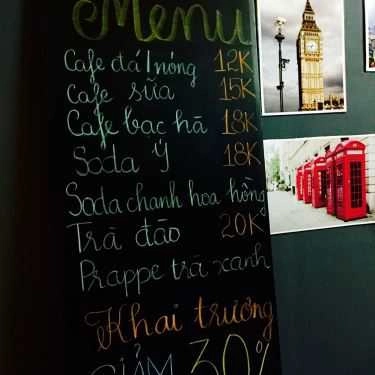 Menu
Cafe đá/nóng 12K
Cafe sữa 15K
Cafe bạc hà 18K
Soda Ý 18K
Soda chanh hoa hồng
Trà đào 20K
Frappe trà xanh
Khai trương
GIẢM 30%